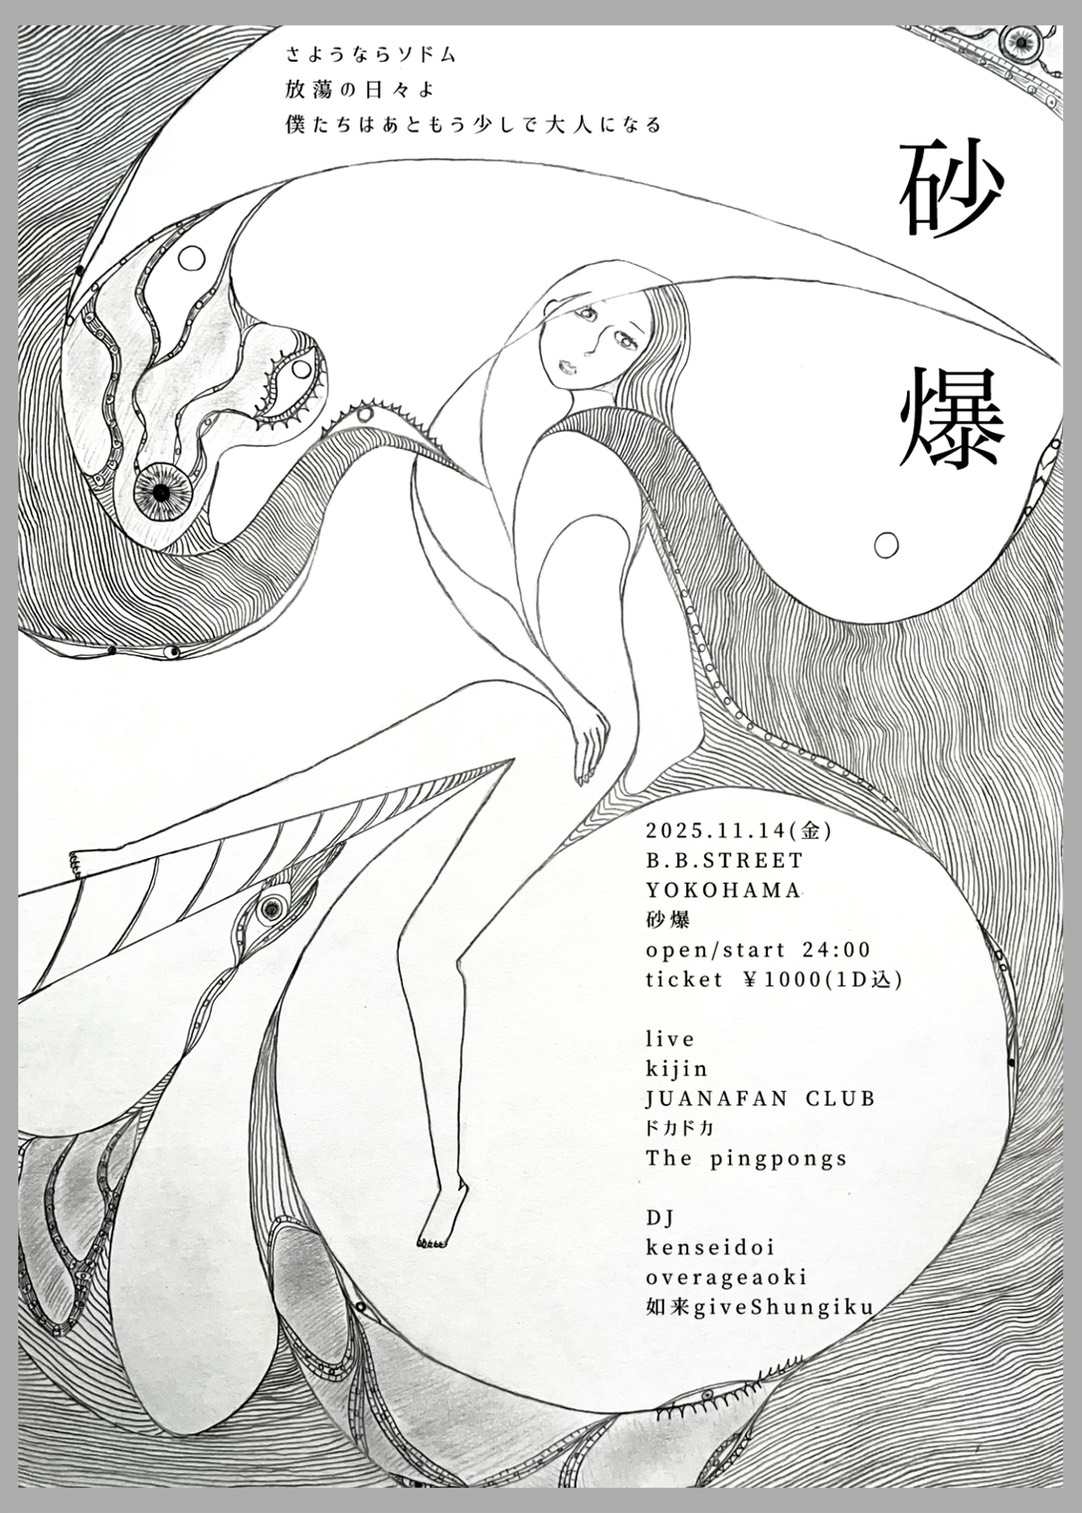 さようならソドム
放蕩の日々よ
僕たちはあともう少しで大人になる
砂爆
2025.11.14(金)
B.B.STREET
YOKOHAMA
砂爆
open/start 24:00
ticket ￥1000(1D込)
live
kijin
JUANAFAN CLUB
ドカドカ
The pingpongs
DJ
kenseidoi
overageaoki
如来giveShungiku